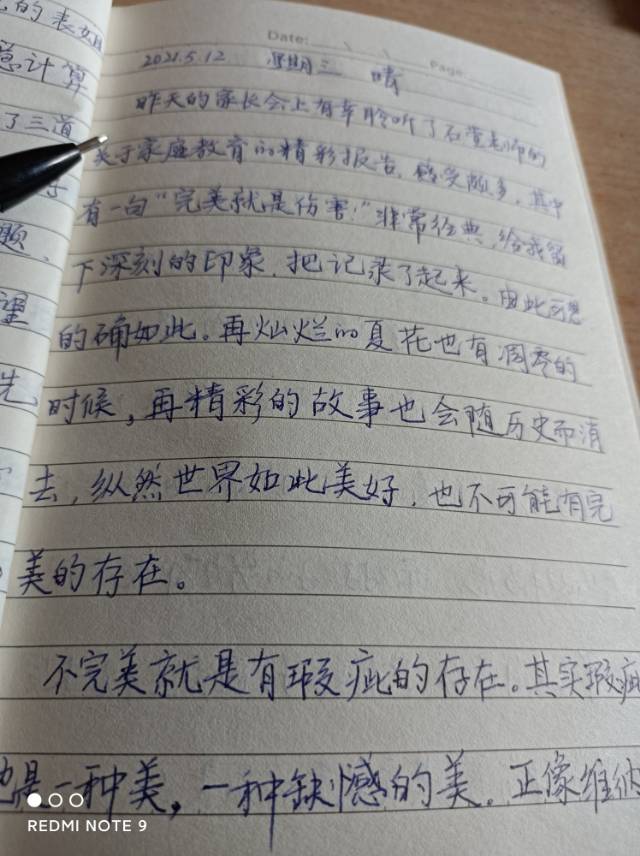 Date: Page:
2021.5.12 星期三 晴
昨天的家长会上有幸聆听了石萱老师的
关于家庭教育的精彩报告,感受颇多,其中
有一句“完美就是伤害!”非常经典,给我留
下深刻的印象,把记录了起来。由此可见
的确如此。再灿烂的夏花也有凋零的
时候,再精彩的故事也会随历史而消
去,纵然世界如此美好,也不可能有完
美的存在。
不完美就是有瑕疵的存在。其实瑕疵
也是一种美,一种缺憾的美。正像维纳
的表姐
计算
了三道
题、
望
先
REDMI NOTE 9